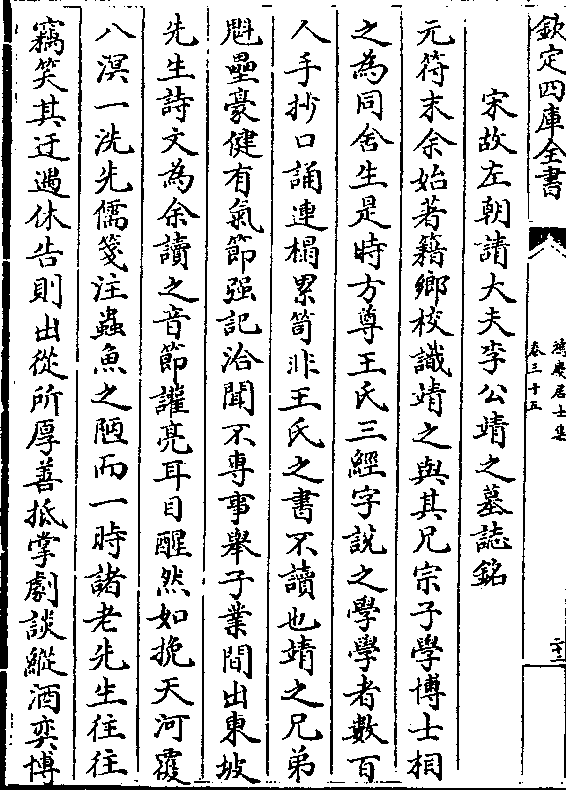 欽定四庫全書
鴻慶居士集
卷三十五
二十二
宋故左朝請大夫李公靖之墓誌銘
元符末余始著籍鄉校識靖之與其兄宗子學博士相
之為同舍生是時方尊王氏三經字說之學學者數百
人手抄口誦連榻累笥非王氏之書不讀也靖之兄弟
魁壘豪健有氣節强記洽聞不專事舉子業間出東坡
先生詩文為余讀之音節讙亮耳目醒然如挽天河覆
八溟一洗先儒箋注蟲魚之陋而一時諸老先生往往
竊笑其迂遇休告則出從所厚善抵掌劇談縱酒奕博